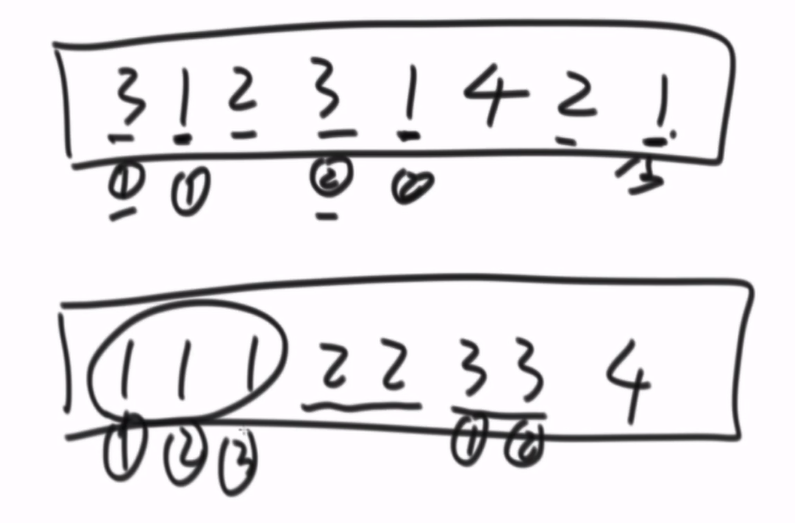 3 1 2 3 1 4 2 1
① ① ② ②
1 1 1 2 2 3 3 4
① ② ③ ① ②